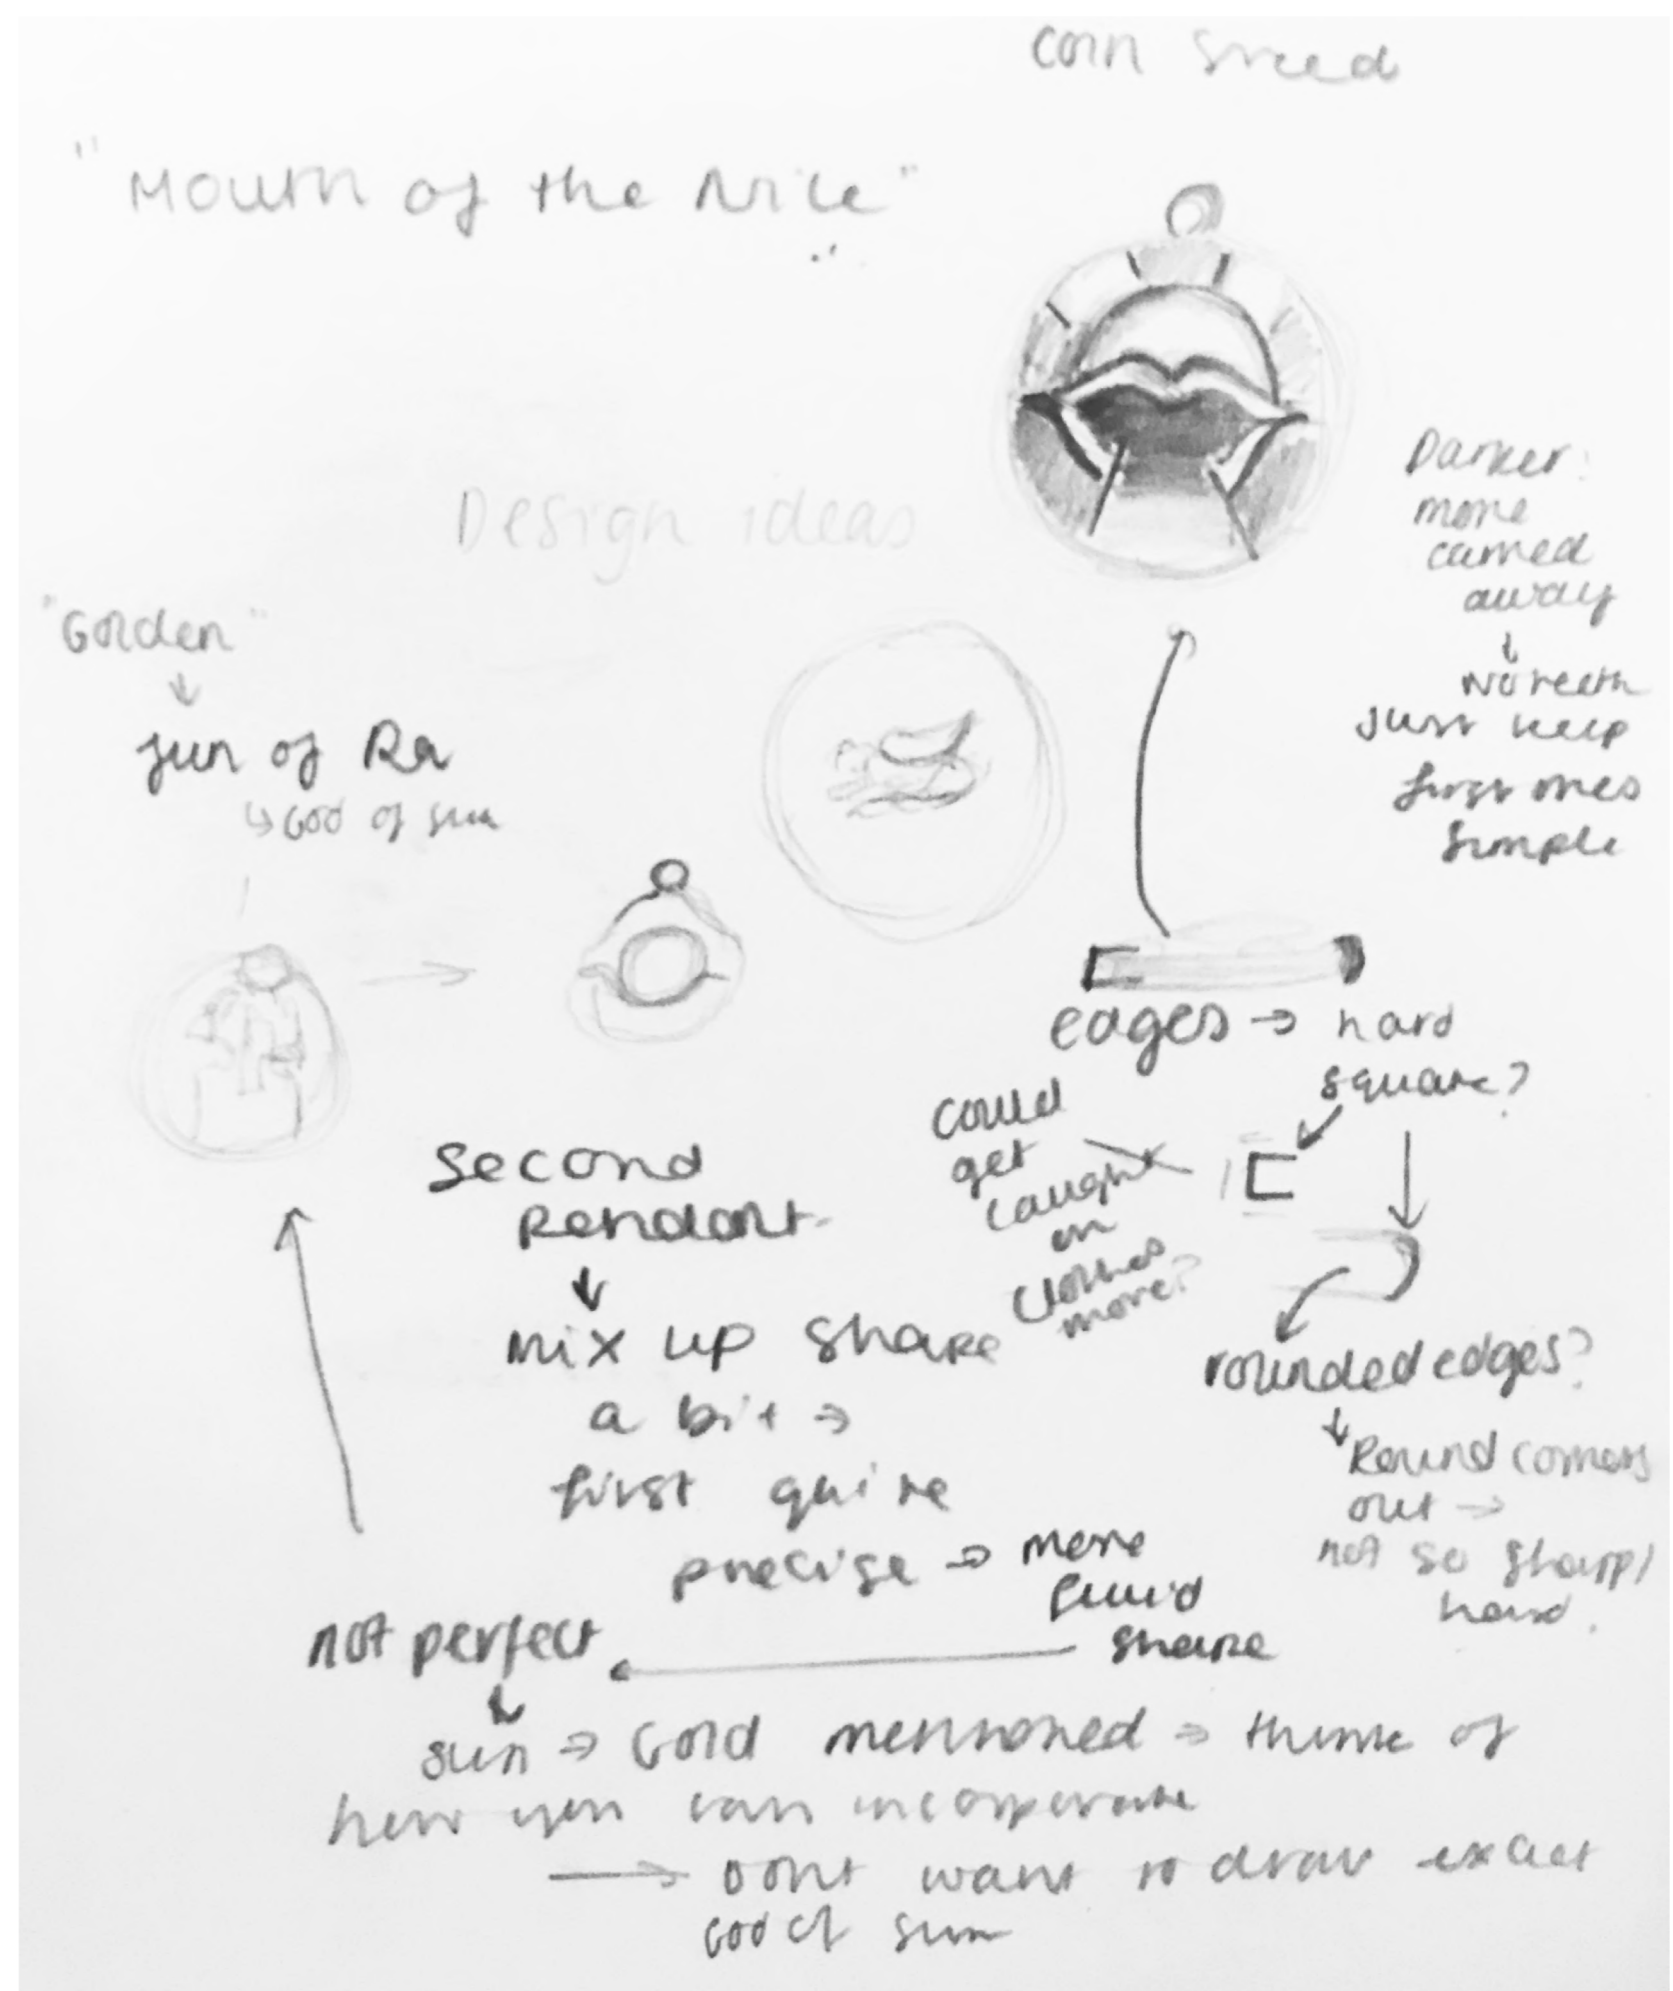 "Mouth of the Nile"
Design ideas
"Golden"
↓
sun of Ra
↳ God of sun
Darker:
more
carved
away
↓
No teeth
just keep
first ones
simple
edges → hard
square?
could
get
caught
on
clothes
more?
rounded edges?
↓
Round corners
out →
not so sharp/
hard.
Second
Pendant.
↓
mix up shape
a bit →
first quite
precise → more
fluid
shape
not perfect
↓
sun → Gold mentioned → think of
how you can incorporate
→ Dont want to draw exact
God of sun